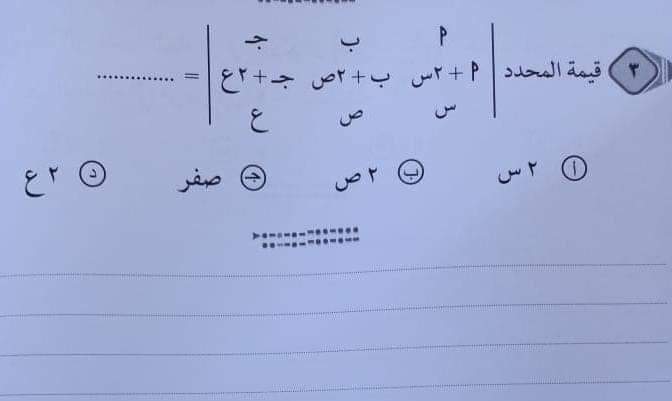 ٣ قيمة المحدد | أ ب جـ |
| أ + ٢س ب + ٢ص جـ + ٢ع | = ..............
| س ص ع |
أ ٢ س ب ٢ ص جـ صفر د ٢ ع